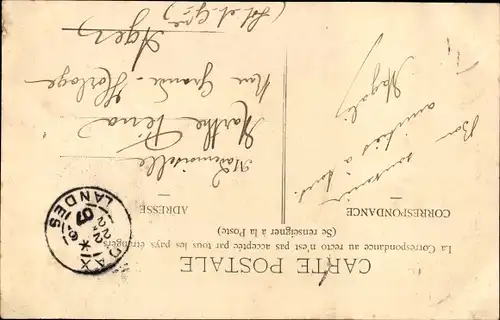 CARTE POSTALE
La Correspondance au recto n'est pas acceptée par tous les pays étrangers
(Se renseigner à la Poste)
CORRESPONDANCE
Bon souvenir
amitiés à tous.
Magali
ADRESSE
Mademoiselle
Marthe
Rue Grande-Horloge
Agen
(Lot et Gne)
DAX
LANDES